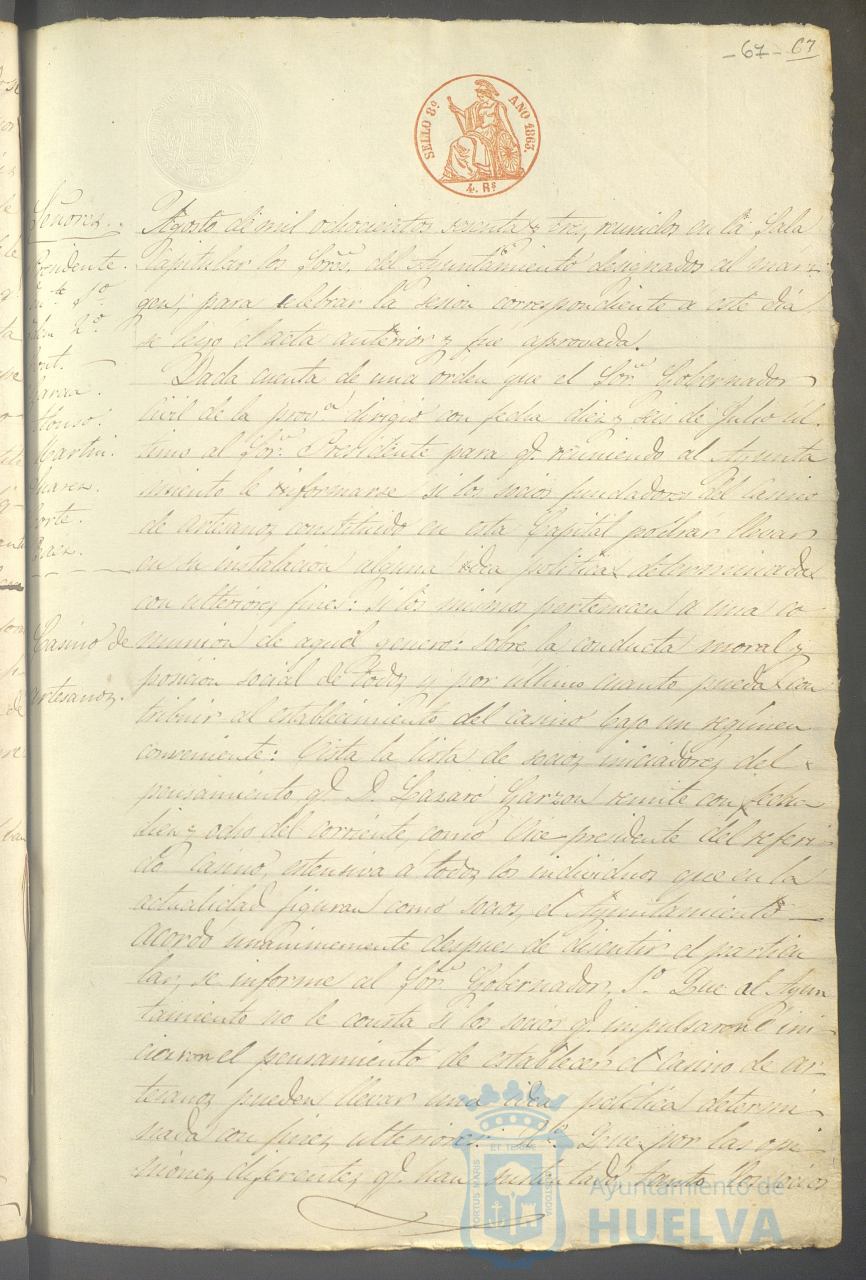 - 67 - 67
SELLO 8º AÑO 1863.
4. Rs
Señores.
Presidente.
Tente 1º
Idem 2º
Garzon.
Alonso.
Martin.
Suarez.
Corte.
Baez.
Agosto de mil ochocientos sesenta y tres, reunidos en la Sala
Capitular los Sores. del Ayuntamiento designados al mar-
gen, para celebrar la sesion correspondiente a este dia
se leyo el acta anterior y fue aprovada.
Dada cuenta de una orden que el Sor. Gobernador
Civil de la prova. dirigió con fecha diez y seis de Julio úl-
timo al Sor. Presidente para q. reuniendo al Ayunta
miento le informase si los socios fundadores del Casino
de artesanos constituido en esta Capital podrian llevar
en su instalacion alguna idea politica determinada
con ulteriores fines: si los mismos pertenecen a una co
Casino de
artesanos.
munion de aquel genero: sobre la conducta moral y
posicion social de todos y por último cuanto pueda con
tribuir al establecimiento del casino bajo un regimen
conveniente: Vista la lista de socios iniciadores del
pensamiento q. D. Lazaro Garzon remite con fecha
diez y ocho del corriente como Vice-presidente del referi-
do Casino, estensiva a todos los individuos que en la
actualidad figuran como socios, el Ayuntamiento
acordó unanimemente despues de discutir el particu
lar, se informe al Sor. Gobernador. 1º Que al Ayun
tamiento no le consta si los socios q. impulsaron é ini
ciaron el pensamiento de establecer el casino de ar-
tesanos pueden llevar una idea politica determi
nada con fines ulteriores: Que por las opi
niones diferentes q. han sustentado tanto los socios
PORTUS MARIS ET TERRE CUSTODIA
Ayuntamiento de
HUELVA